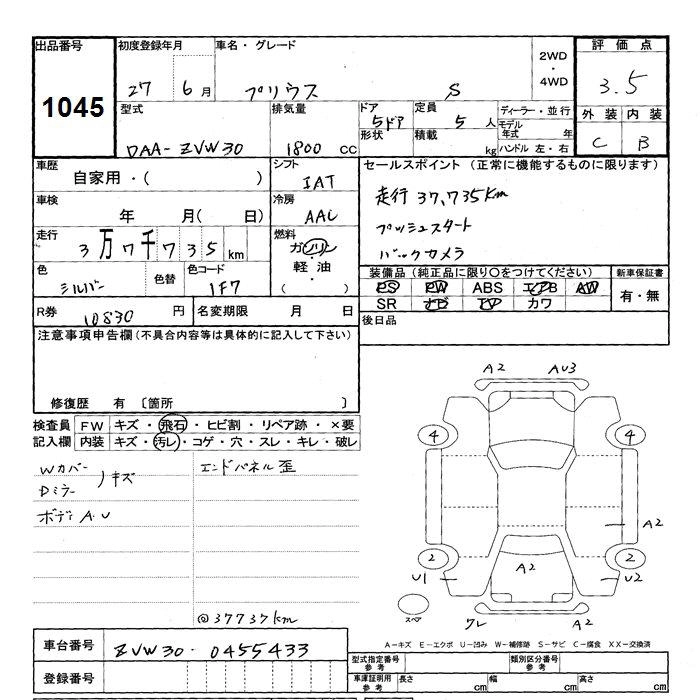 出品番号
1045
初度登録年月
27 6月
車名・グレード
プリウス S
2WD
・
4WD
評価点
3.5
外装 内装
C B
型式
DAA-ZVW30
排気量
1800 CC
ドア
5ドア
形状
定員
5人
積載
kg
ディーラー・並行
モデル
年式 年
ハンドル 左・右
車歴
自家用・( )
シフト
IAT
車検
年 月( 日)
冷房
AAC
走行
3万7千735km
燃料
ガソリン
軽油・
( )
色
シルバー
色替
色コード
1F7
セールスポイント (正常に機能するものに限ります)
走行 37,735Km
プッシュスタート
バックカメラ
装備品(純正品に限り○をつけてください)
PS PW ABS エアB AW
SR ナビ TV カワ
新車保証書
有・無
R券
10830 円
名変期限 月 日
後日品
注意事項申告欄(不具合内容等は具体的に記入して下さい)
修復歴 有 〔箇所 〕
検査員
記入欄
FW キズ・飛石・ヒビ割・リペア跡・×要
内装 キズ・汚レ・コゲ・穴・スレ・キレ・破レ
Wカバー
Dミラー
キズ
ボディA.U
エンドパネル歪
@37737km
A2 AU3
4 4
A2
2 2
U1 A2 U2
スペア
ワレ A2
A-キズ E-エクボ U-凹み W-補修跡 S-サビ C-腐食 XX-交換済
車台番号
ZVW30-0455433
登録番号
型式指定番号
参考
類別区分番号
参考
車庫証明用
参考
長さ cm
幅 cm
高さ cm